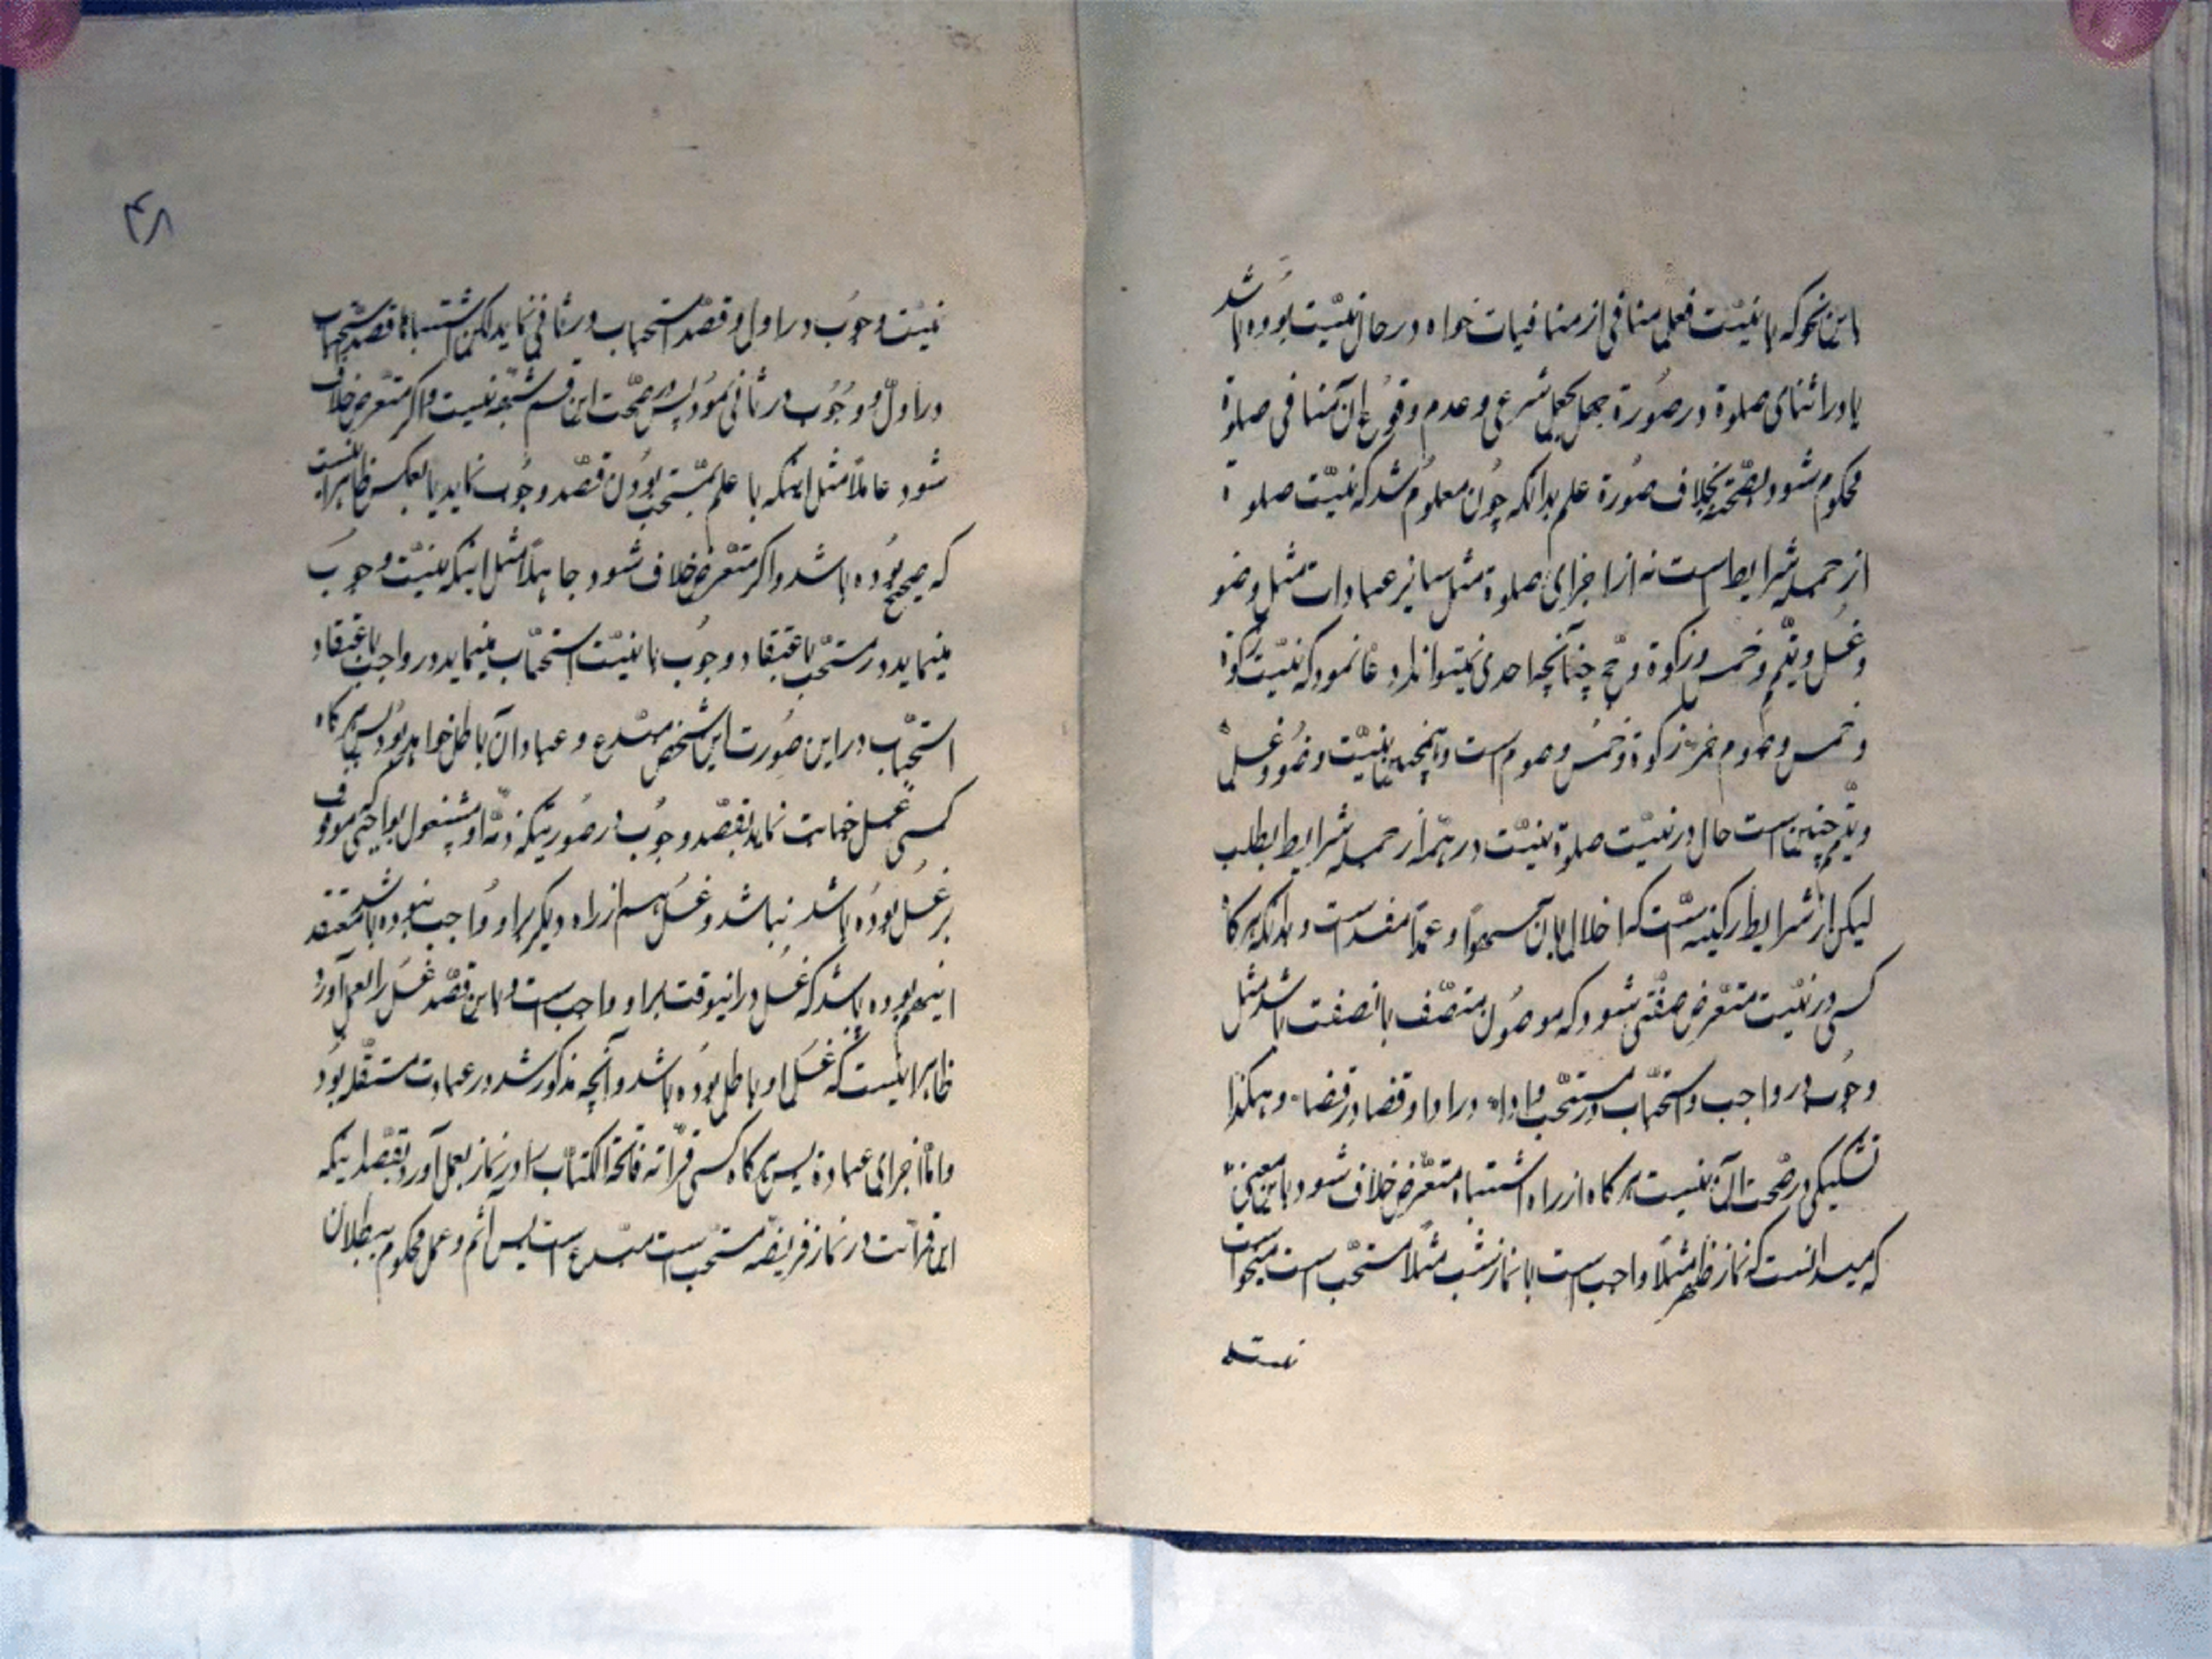 باین نحو که با نیّت فعلی منافی از منافیات خواه در حال نیّت بوده باشد
یا در اثنای صلوة در صورة جهل بجعل شرعی و عدم وقوع ان منافی صلوة
محکوم شود بصحّة بخلاف صُورة علم بدانکه چُون معلوم شد که نیّت صلوة
از جمله شرایط است نه از اجزای صلوة مثل سایر عبادات مثل وضو
و غسل و تیمّم و خمس و زکوة و حج چنانچه احدی نمیتواند ادعا نمود که نیّت زکوة
و خمس و صوم جزء زکوة و خمس و صوم است و همچنین نیّت وضو و غسل
و تیمّم چنین است حال در نیّت صلوة نیّت در همه از جمله شرایط بطلب
لیکن از شرایط رکنیه است که اخلال بان سهواً و عمداً مفسد است و بدانکه هرکاه
کسی در نیّت متعرّض صفتی شود که موصُول متصّف بانصفت باشد مثل
وجُوب در واجب و استحباب در مستحّب و اداء در ادا و قضا در قضاء و هکذا
تشکیکی در صحّت آن نیست هرکاه از راه اشتباه متعرّض خلاف شود باین معنی
که میدانست که نماز ظهر مثلاً واجب است یا نماز شب مثلاً مستحّب است میخواست
نیّت
۴۸
نیّت وجُوب در اول و قصد استحباب در ثانی نماید لکن اشتباهاً قصد استحباب
در اوّل و وجُوب در ثانی نمُود پس در صحّت این قسم شبهه نیست و اکر متعرض خلاف
شود عالماً مثل اینکه با علم بمستحب بوُدن قصد وجُوب نماید یا بعکس ظاهر اینست
که صحیح بوُده باشد و اکر متعّرض خلاف شود جاهلاً مثل اینکه نیّت وجوب
مینماید در مستحّب باعتقاد وجُوب یا نیّت استحباب مینماید در واجب باعتقاد
استحبّاب در این صُورت این شخص مبتدع و عبادت آن باطل خواهد بوُد پس هرکاه
کسی غسل جنابت نماید بقصد وجوُب در صُورتیکه ذمّه او مشغول بواجبی که موقوف
بر غسل بوُده باشد نباشد و غسل هم از راه دیکر براو وُاجب نبوده باشد معتقد
اینهم بوده باشد که غسل در اینوقت براو واجب است و باین قصّد غسل را بعمل آورد
ظاهر اینست که غسل او باطل بوُده باشد و آنچه مذکور شد در عبادت مستقّله بوُد
و امّا اجزای عبادة پس هرکاه کسی قرائة فاتحة الکتاب را در نماز بعمل آورد بقصد اینکه
این قرائت در نماز فریضه مستحب است مبتدع است پس آثم و عمل محکوم ببطلان